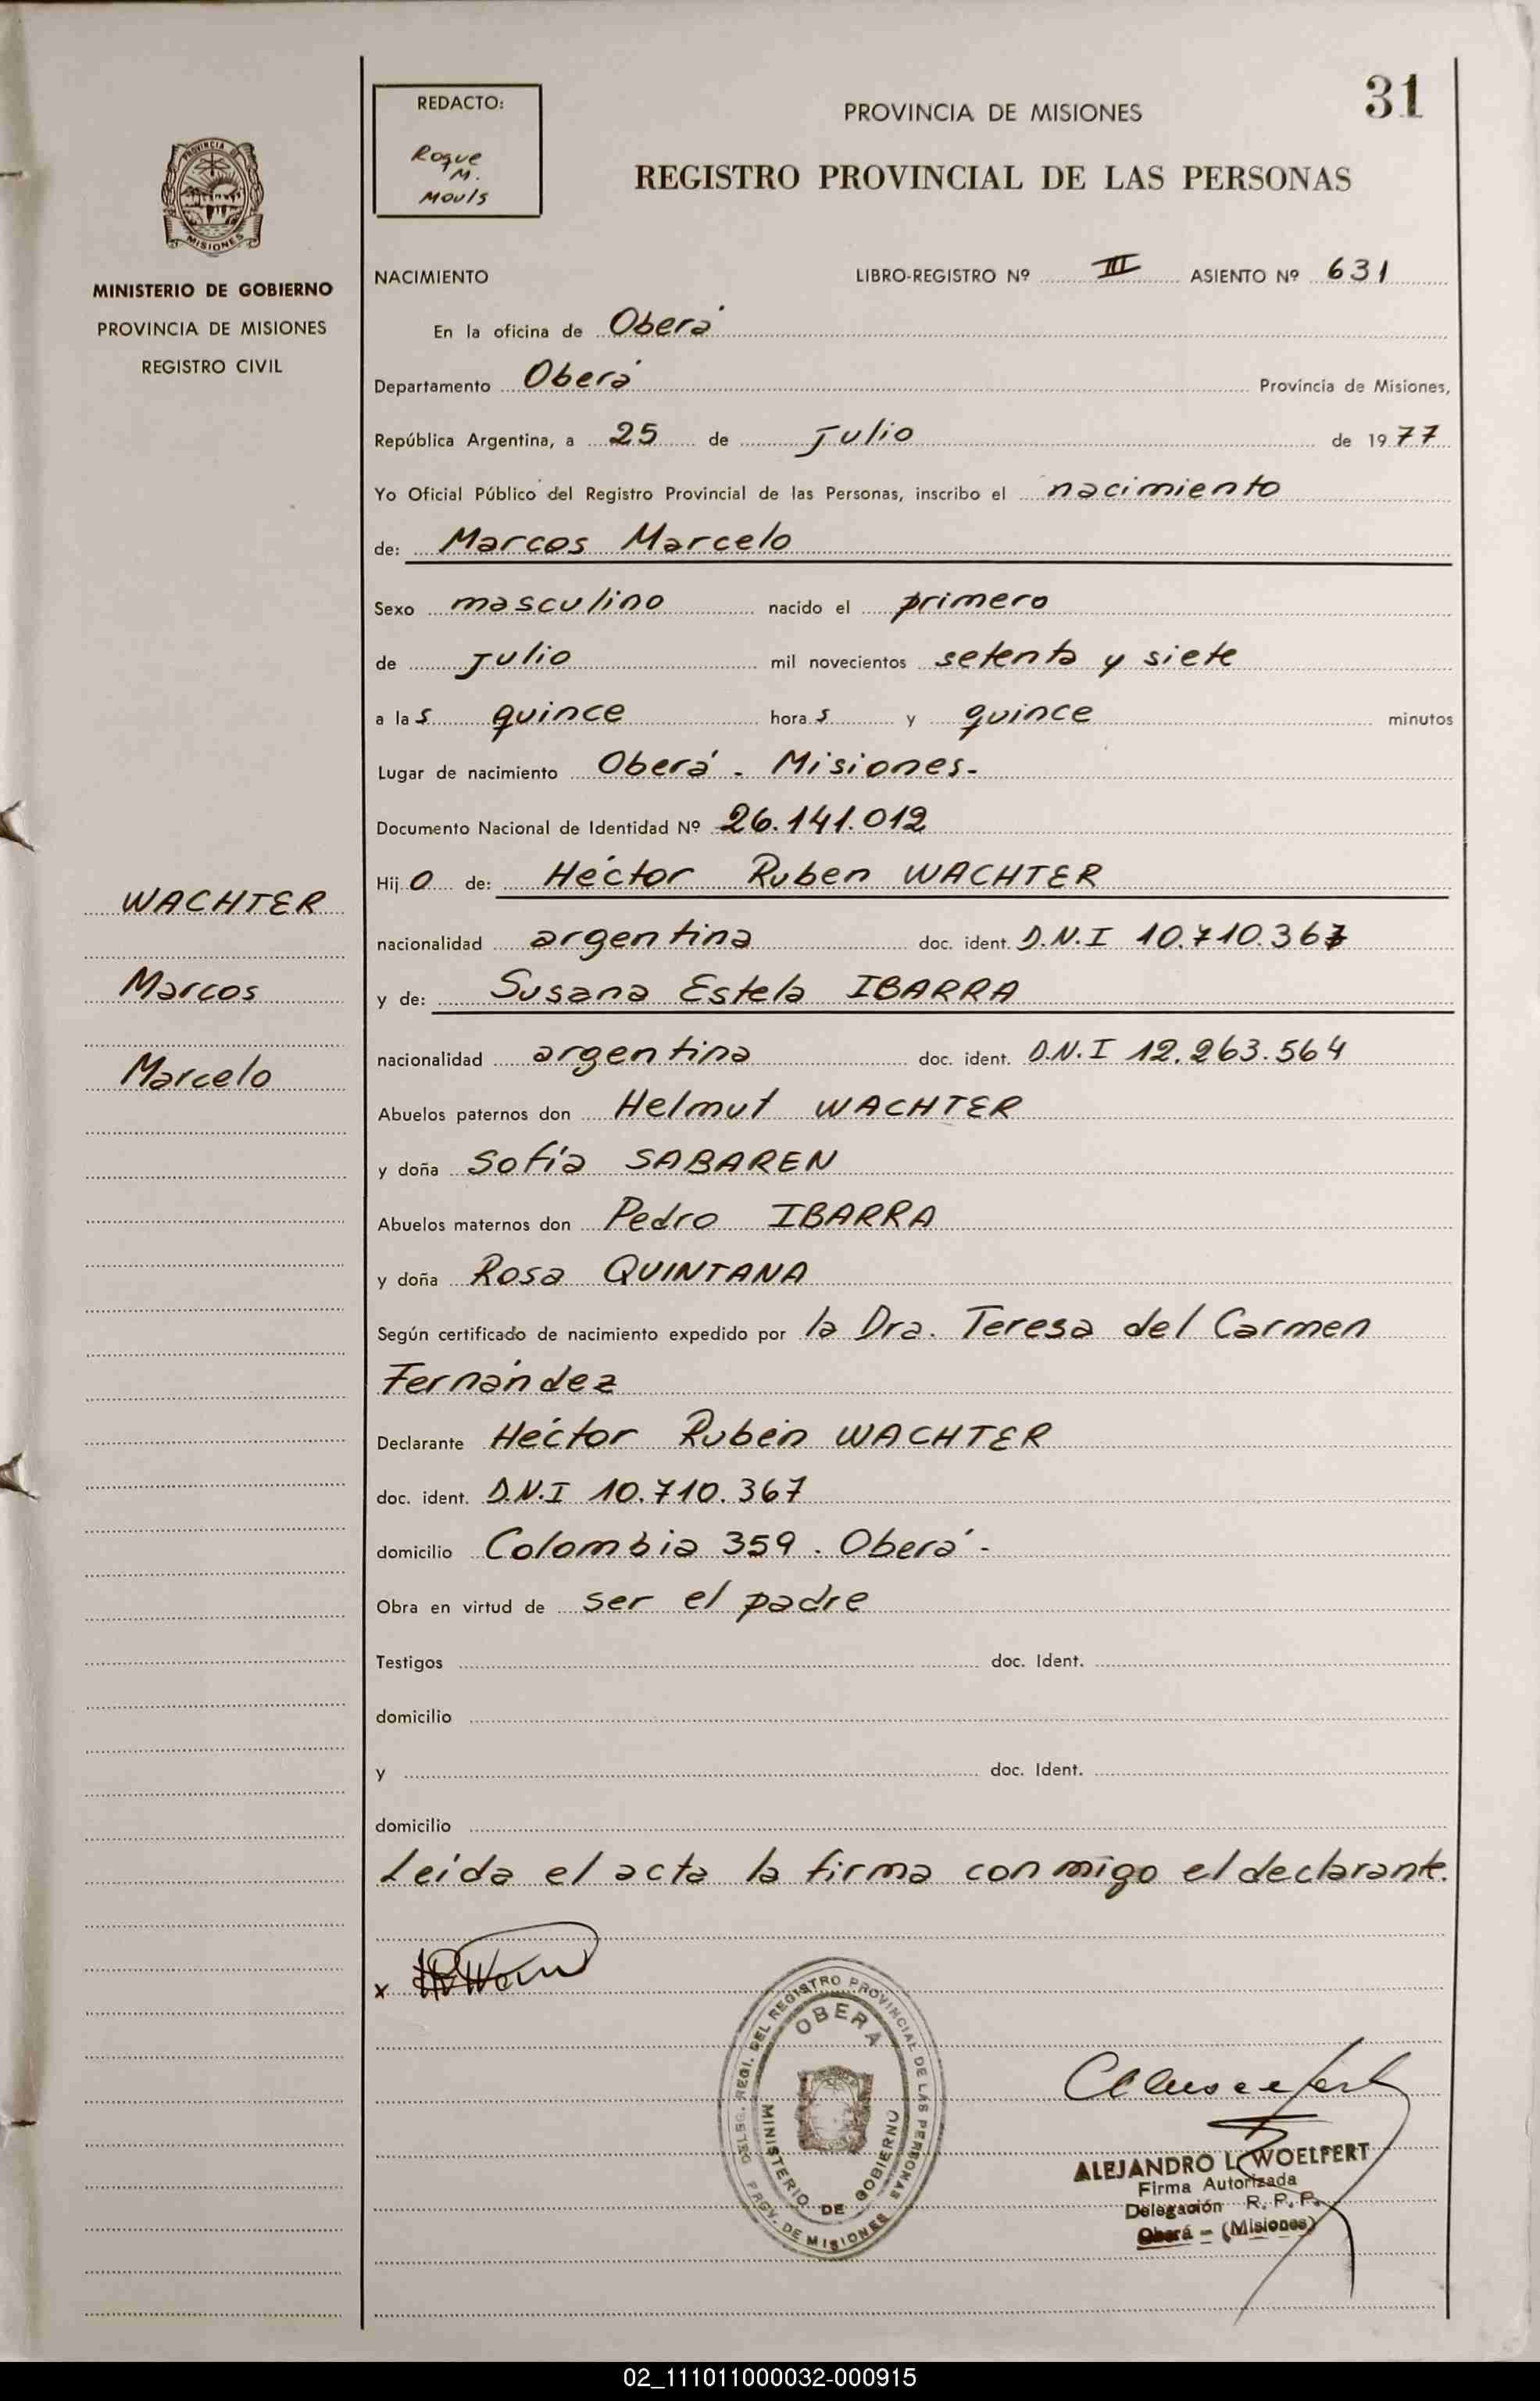 31
REDACTO:
Roque
M.
Mouls
PROVINCIA DE MISIONES
REGISTRO PROVINCIAL DE LAS PERSONAS
PROVINCIA DE
MISIONES
MINISTERIO DE GOBIERNO
PROVINCIA DE MISIONES
REGISTRO CIVIL
NACIMIENTO LIBRO-REGISTRO Nº III ASIENTO Nº 631
En la oficina de Oberá
Departamento Oberá Provincia de Misiones,
República Argentina, a 25 de Julio de 1977
Yo Oficial Público del Registro Provincial de las Personas, inscribo el nacimiento
de: Marcos Marcelo
Sexo masculino nacido el primero
de Julio mil novecientos setenta y siete
a las quince horas y quince minutos
Lugar de nacimiento Oberá - Misiones-
Documento Nacional de Identidad Nº 26.141.012
Hijo de: Héctor Ruben WACHTER
nacionalidad argentina doc. ident. D.N.I 10.710.367
y de: Susana Estela IBARRA
nacionalidad argentina doc. ident. D.N.I 12.263.564
Abuelos paternos don Helmut WACHTER
y doña Sofía SABAREN
Abuelos maternos don Pedro IBARRA
y doña Rosa QUINTANA
Según certificado de nacimiento expedido por la Dra. Teresa del Carmen
Fernández
Declarante Héctor Rubén WACHTER
doc. ident. D.N.I 10.710.367
domicilio Colombia 359. Oberá-
Obra en virtud de ser el padre
Testigos doc. Ident.
domicilio
y doc. Ident.
domicilio
Leída el acta la firma conmigo el declarante.
WACHTER
Marcos
Marcelo
x
DELEG. REGI. DEL REGISTRO PROVINCIAL DE LAS PERSONAS
OBERA
MINISTERIO DE GOBIERNO
PROV. DE MISIONES
ALEJANDRO L. WOELFERT
Firma Autorizada
Delegación R. P. P.
Oberá - (Misiones)
02_111011000032-000915